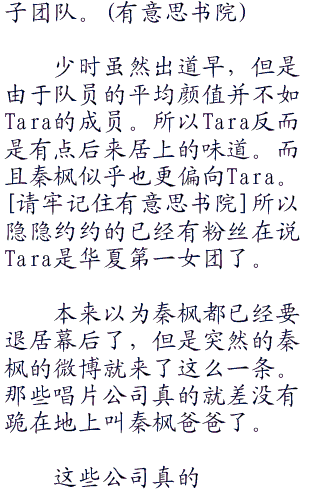 子团队。(有意思书院)
少时虽然出道早，但是
由于队员的平均颜值并不如
Tara的成员。所以Tara反而
是有点后来居上的味道。而
且秦枫似乎也更偏向Tara。
[请牢记住有意思书院]所以
隐隐约约的已经有粉丝在说
Tara是华夏第一女团了。
本来以为秦枫都已经要
退居幕后了，但是突然的秦
枫的微博就来了这么一条。
那些唱片公司真的就差没有
跪在地上叫秦枫爸爸了。
这些公司真的